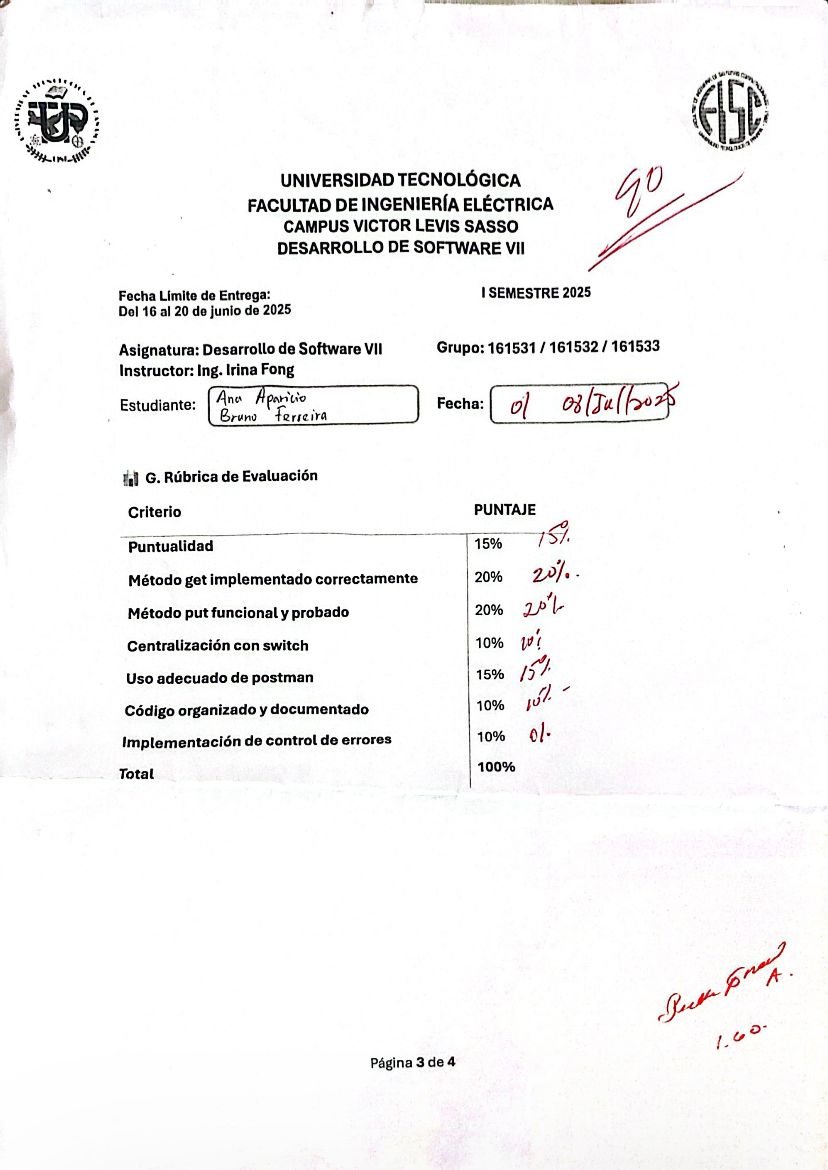 FISC
90
UNIVERSIDAD TECNOLÓGICA
FACULTAD DE INGENIERÍA ELÉCTRICA
CAMPUS VICTOR LEVIS SASSO
DESARROLLO DE SOFTWARE VII
Fecha Límite de Entrega: I SEMESTRE 2025
Del 16 al 20 de junio de 2025
Asignatura: Desarrollo de Software VII Grupo: 161531 / 161532 / 161533
Instructor: Ing. Irina Fong
Estudiante: Ana Aparicio
Bruno Ferreira
Fecha: 08/Jul/2025
G. Rúbrica de Evaluación
Criterio PUNTAJE
Puntualidad 15% 15%
Método get implementado correctamente 20% 20%
Método put funcional y probado 20% 20%
Centralización con switch 10% 10%
Uso adecuado de postman 15% 15%
Código organizado y documentado 10% 10%
Implementación de control de errores 10% 0%
Total 100%
A.
1.60.
Página 3 de 4